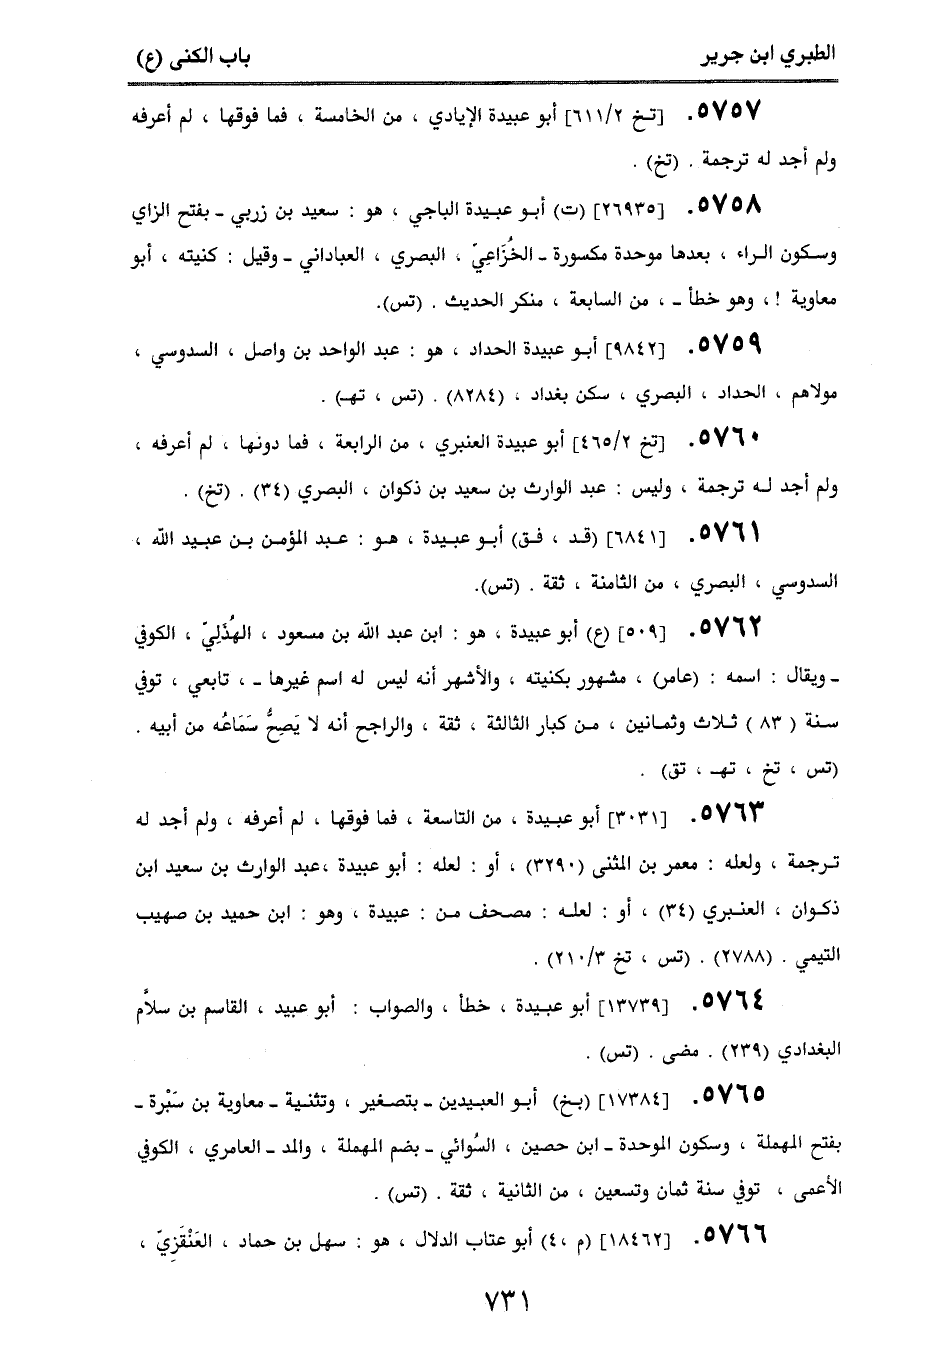 الطبري ابن جرير باب الكنى (ع)
٥٧٥٧. [تخ ٦١١/٢] أبو عبيدة الإيادي ، من الخامسة ، فما فوقها ، لم أعرفه
ولم أجد له ترجمة . (تخ) .
٥٧٥٨. [٢٦٩٣٥] (ت) أبو عبيدة الباجي ، هو : سعيد بن زربي ـ بفتح الزاي
وسكون الراء ، بعدها موحدة مكسورة ـ الخُزَاعِيّ ، البصري ، العباداني ـ وقيل : كنيته ، أبو
معاوية ! ، وهو خطأ ـ ، من السابعة ، منكر الحديث . (تس).
٥٧٥٩. [٩٨٤٢] أبو عبيدة الحداد ، هو : عبد الواحد بن واصل ، السدوسي ،
مولاهم ، الحداد ، البصري ، سكن بغداد ، (٨٢٨٤) . (تس ، تهـ) .
٥٧٦٠. [تخ ٤٦٥/٢] أبو عبيدة العنبري ، من الرابعة ، فما دونها ، لم أعرفه ،
ولم أجد له ترجمة ، وليس : عبد الوارث بن سعيد بن ذكوان ، البصري (٣٤) . (تخ) .
٥٧٦١. [٦٨٤١] (قد ، فق) أبو عبيدة ، هو : عبد المؤمن بن عبيد الله ،
السدوسي ، البصري ، من الثامنة ، ثقة . (تس).
٥٧٦٢. [٥٠٩] (ع) أبو عبيدة ، هو : ابن عبد الله بن مسعود ، الهُذَلِيّ ، الكوفي
ـ ويقال : اسمه : (عامر) ، مشهور بكنيته ، والأشهر أنه ليس له اسم غيرها ـ ، تابعي ، توفي
سنة ( ٨٣ ) ثلاث وثمانين ، من كبار الثالثة ، ثقة ، والراجح أنه لا يَصِحُّ سَمَاعُه من أبيه .
(تس ، تخ ، تهـ ، تق) .
٥٧٦٣. [٣٠٣١] أبو عبيدة ، من التاسعة ، فما فوقها ، لم أعرفه ، ولم أجد له
ترجمة ، ولعله : معمر بن المثنى (٣٢٩٠) ، أو : لعله : أبو عبيدة ،عبد الوارث بن سعيد ابن
ذكوان ، العنبري (٣٤) ، أو : لعله : مصحف من : عبيدة ، وهو : ابن حميد بن صهيب
التيمي . (٢٧٨٨) . (تس ، تخ ٢١٠/٣) .
٥٧٦٤. [١٣٧٣٩] أبو عبيدة ، خطأ ، والصواب : أبو عبيد ، القاسم بن سلاَّم
البغدادي (٢٣٩) . مضى . (تس) .
٥٧٦٥. [١٧٣٨٤] (بخ) أبو العبيدين ـ بتصغير ، وتثنية ـ معاوية بن سَبْرة ـ
بفتح المهملة ، وسكون الموحدة ـ ابن حصين ، السُوائي ـ بضم المهملة ، والمد ـ العامري ، الكوفي
الأعمى ، توفي سنة ثمان وتسعين ، من الثانية ، ثقة . (تس) .
٥٧٦٦. [١٨٤٦٢] (م ،٤) أبو عتاب الدلال ، هو : سهل بن حماد ، العَنْقَزِيّ ،
٧٣١